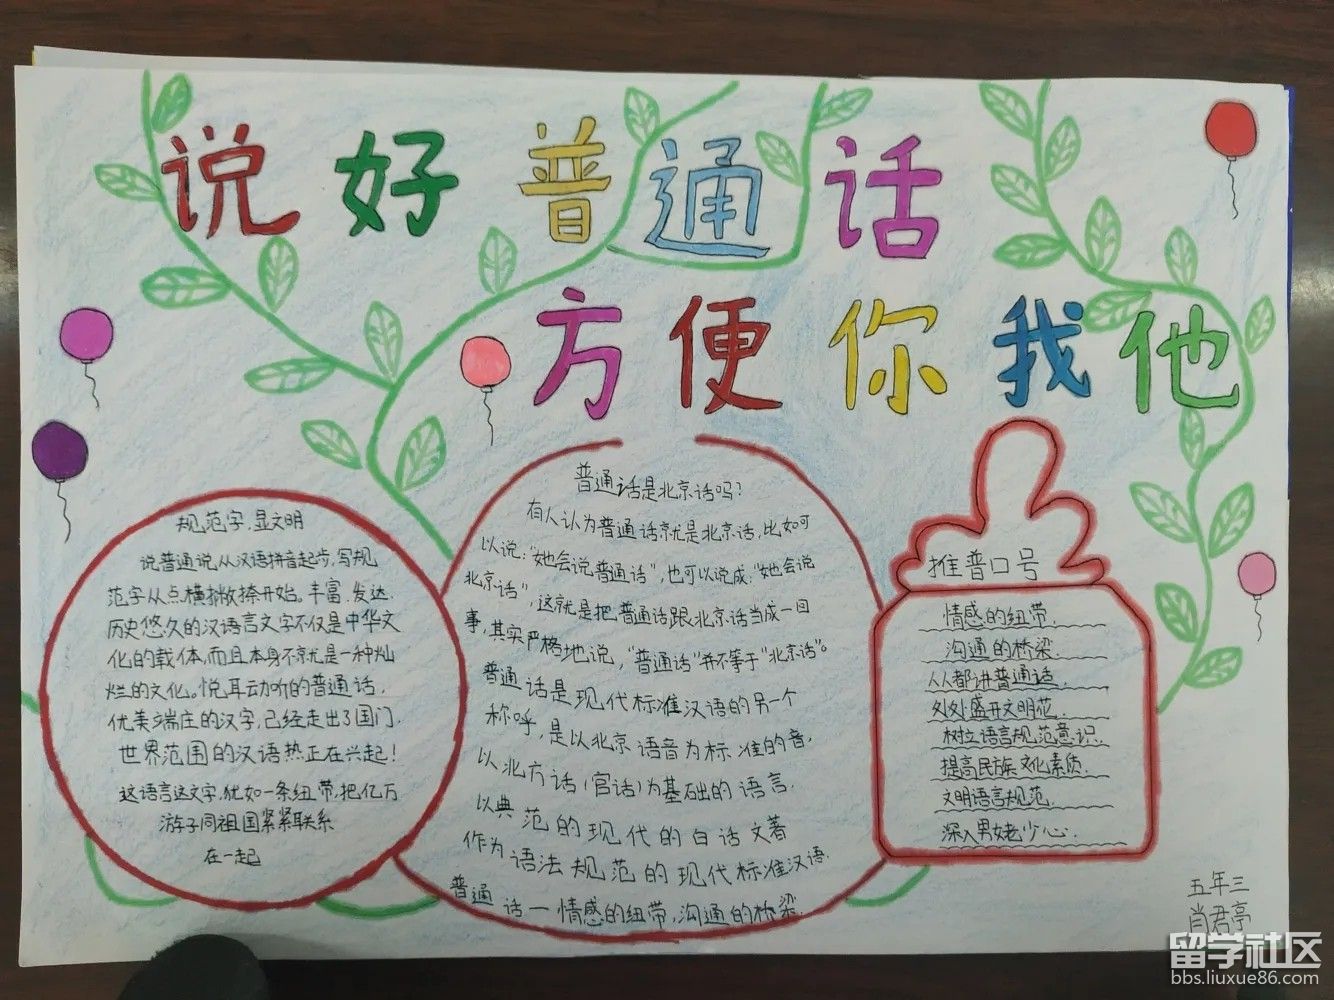 说好普通话
方便你我他
规范字,显文明
说普通说,从汉语拼音起步,写规
范字从点横撇捺开始。丰富.发达.
历史悠久的汉语言文字不仅是中华文
化的载体,而且本身不就是一种灿
烂的文化。悦耳动听的普通话,
优美端庄的汉字,已经走出了国门.
世界范围的汉语热正在兴起!
这语言这文字,犹如一条纽带,把亿万
游子同祖国紧紧联系
在一起
普通话是北京话吗?
有人认为普通话就是北京话,比如可
以说:"她会说普通话",也可以说成:"她会说
北京话",这就是把普通话跟北京话当成一回
事,其实严格地说,"普通话"并不等于"北京话"。
普通话是现代标准汉语的另一个
称呼,是以北京语音为标准的音,
以北方话(官话)为基础的语言,
以典范的现代的白话文著
作为语法规范的现代标准汉语.
普通话一情感的纽带,沟通的桥梁.
推普口号
情感的纽带.
沟通的桥梁.
人人都讲普通话.
处处盛开文明花.
树立语言规范意识.
提高民族文化素质.
文明语言规范.
深入男女老少心.
五年三
肖君亭
留学社区
bbs.liuxue86.com